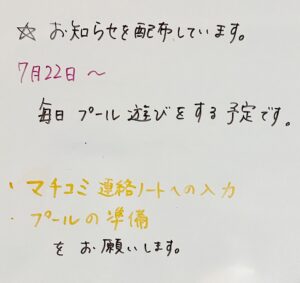 ☆ お知らせを配布しています。
7月22日 ～
毎日 プール 遊びをする予定です。
・マチコミ 連絡ノートへの入力
・プールの準備
を お願いします。